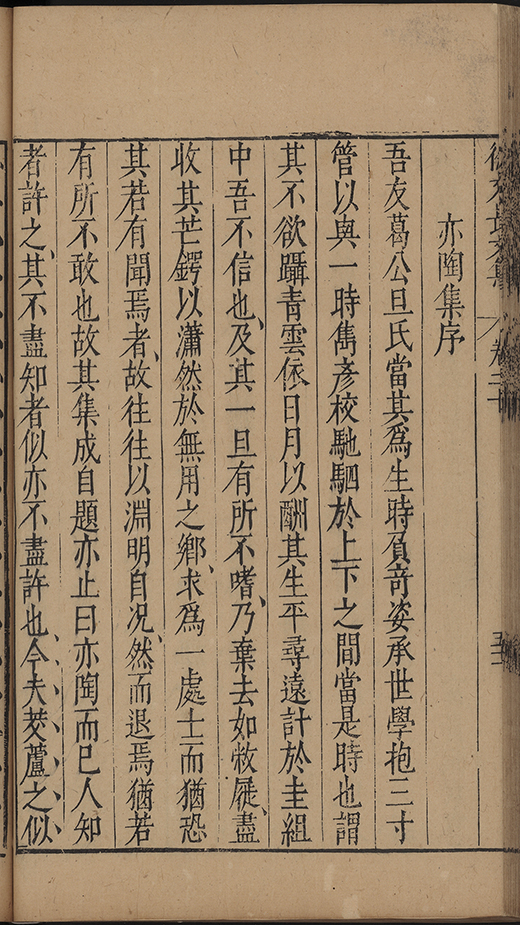 亦陶集序
吾友葛公旦氏當其為生時負奇姿承世學抱三寸
管以與一時雋彥校馳駟於上下之間當是時也謂
其不欲躡青雲依日月以酬其生平尋遠計於圭組
中吾不信也及其一旦有所不嗜乃棄去如敝屣盡
收其芒鍔以瀟然於無用之鄉求為一處士而猶恐
其若有聞焉者故往往以淵明自况然而退焉猶若
有所不敢也故其集成自題亦止曰亦陶而已人知
者許之其不盡知者似亦不盡許也今夫茭蘆之似